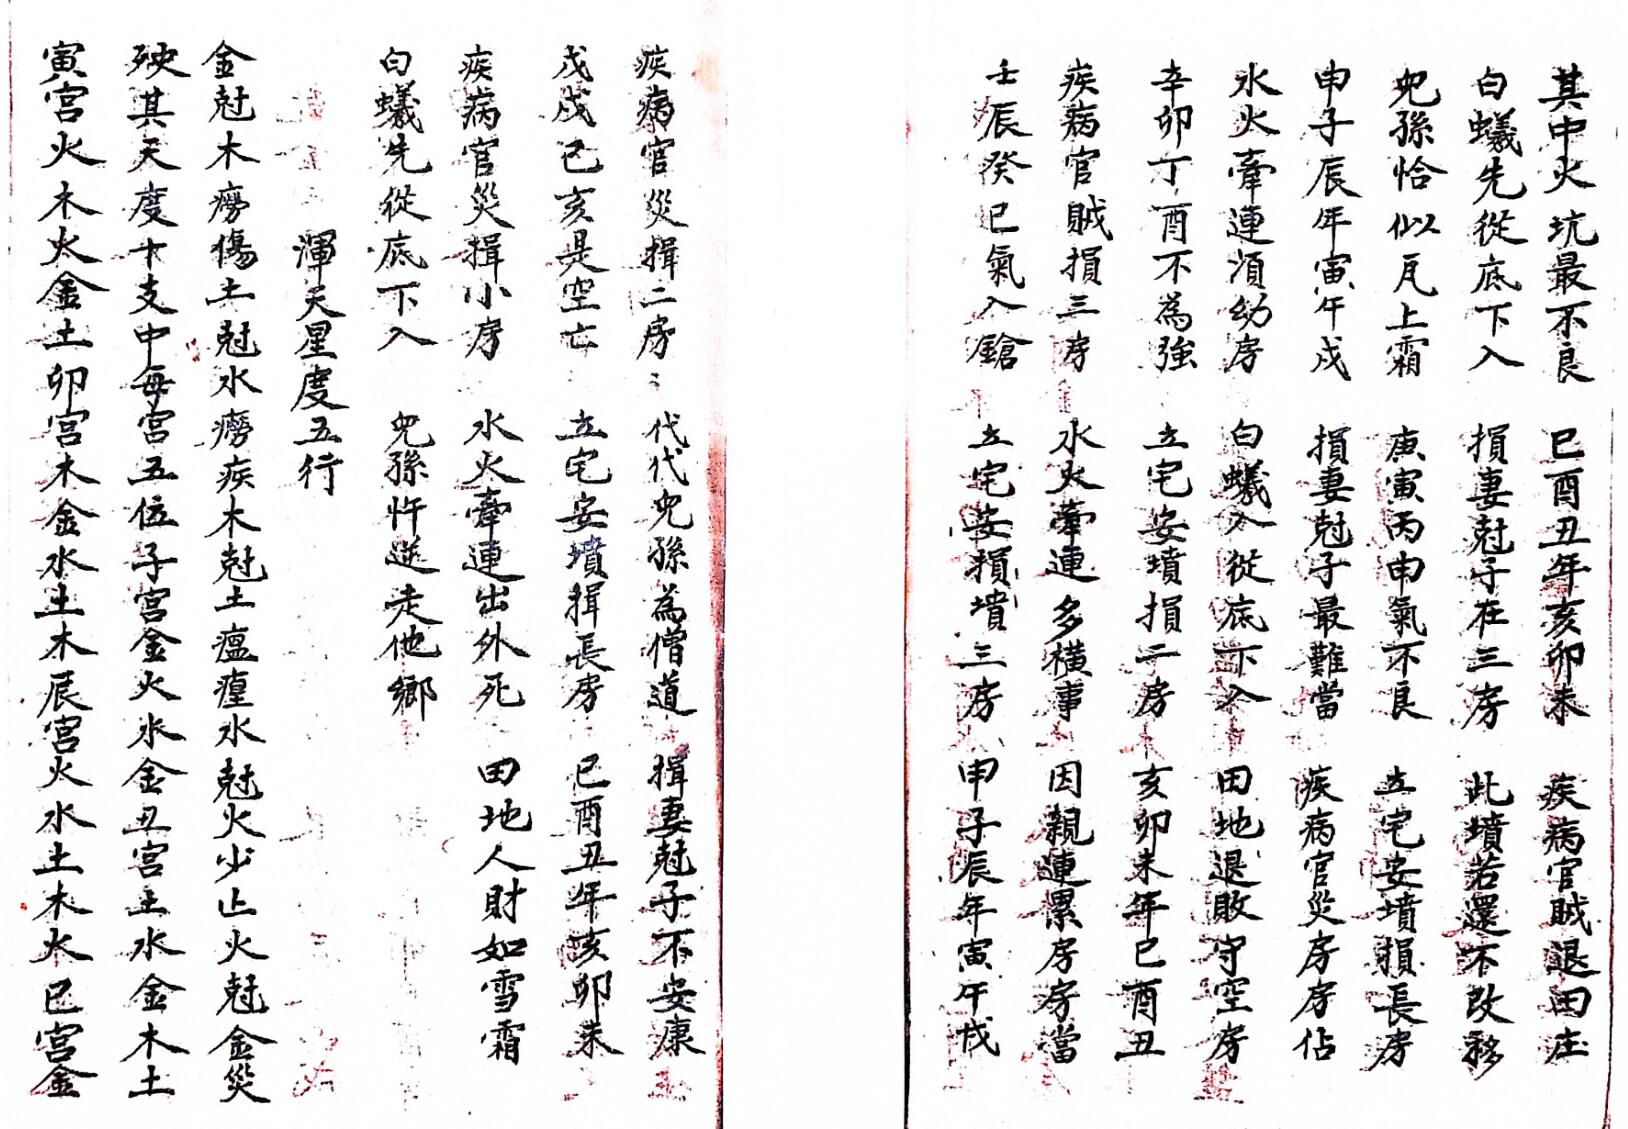 其中火坑最不良 巳酉丑年亥卯未 疾病官賊退田庄
白蟻先從底下入 損妻尅子在三房 此墳若還不改移
兒孫恰似瓦上霜 庚寅丙申氣不良 立宅安墳損長房
申子辰年寅午戌 損妻尅子最難當 疾病官災房房佔
水火牽連湏幼房 白蟻入從底下入 田地退敗守空房
辛卯丁酉不為強 立宅安墳損二房 亥卯未年巳酉丑
疾病官賊損三房 水火牽連多橫事 因親連累房房當
壬辰癸巳氣入鎗 立宅安損墳三房 申子辰年寅午戌
疾病官災揖二房 〻代代兒孫為僧道 揖妻尅子不安康
戊戌己亥是空亡 立宅安墳揖長房 巳酉丑年亥卯未
疾病官災揖小房 水火牽連出外死 田地人財如雪霜
白蟻先從底下入 兒孫忤逆走他鄉
渾天星度五行
金尅木癆傷土尅水癆疾木尅土瘟瘟水尅火少亡火尅金災
殃其天度十支中每宮五位子宮金火水金丑宮土水金木土
寅宮火木火金土卯宮木金水土木辰宮火水土木火巳宮金